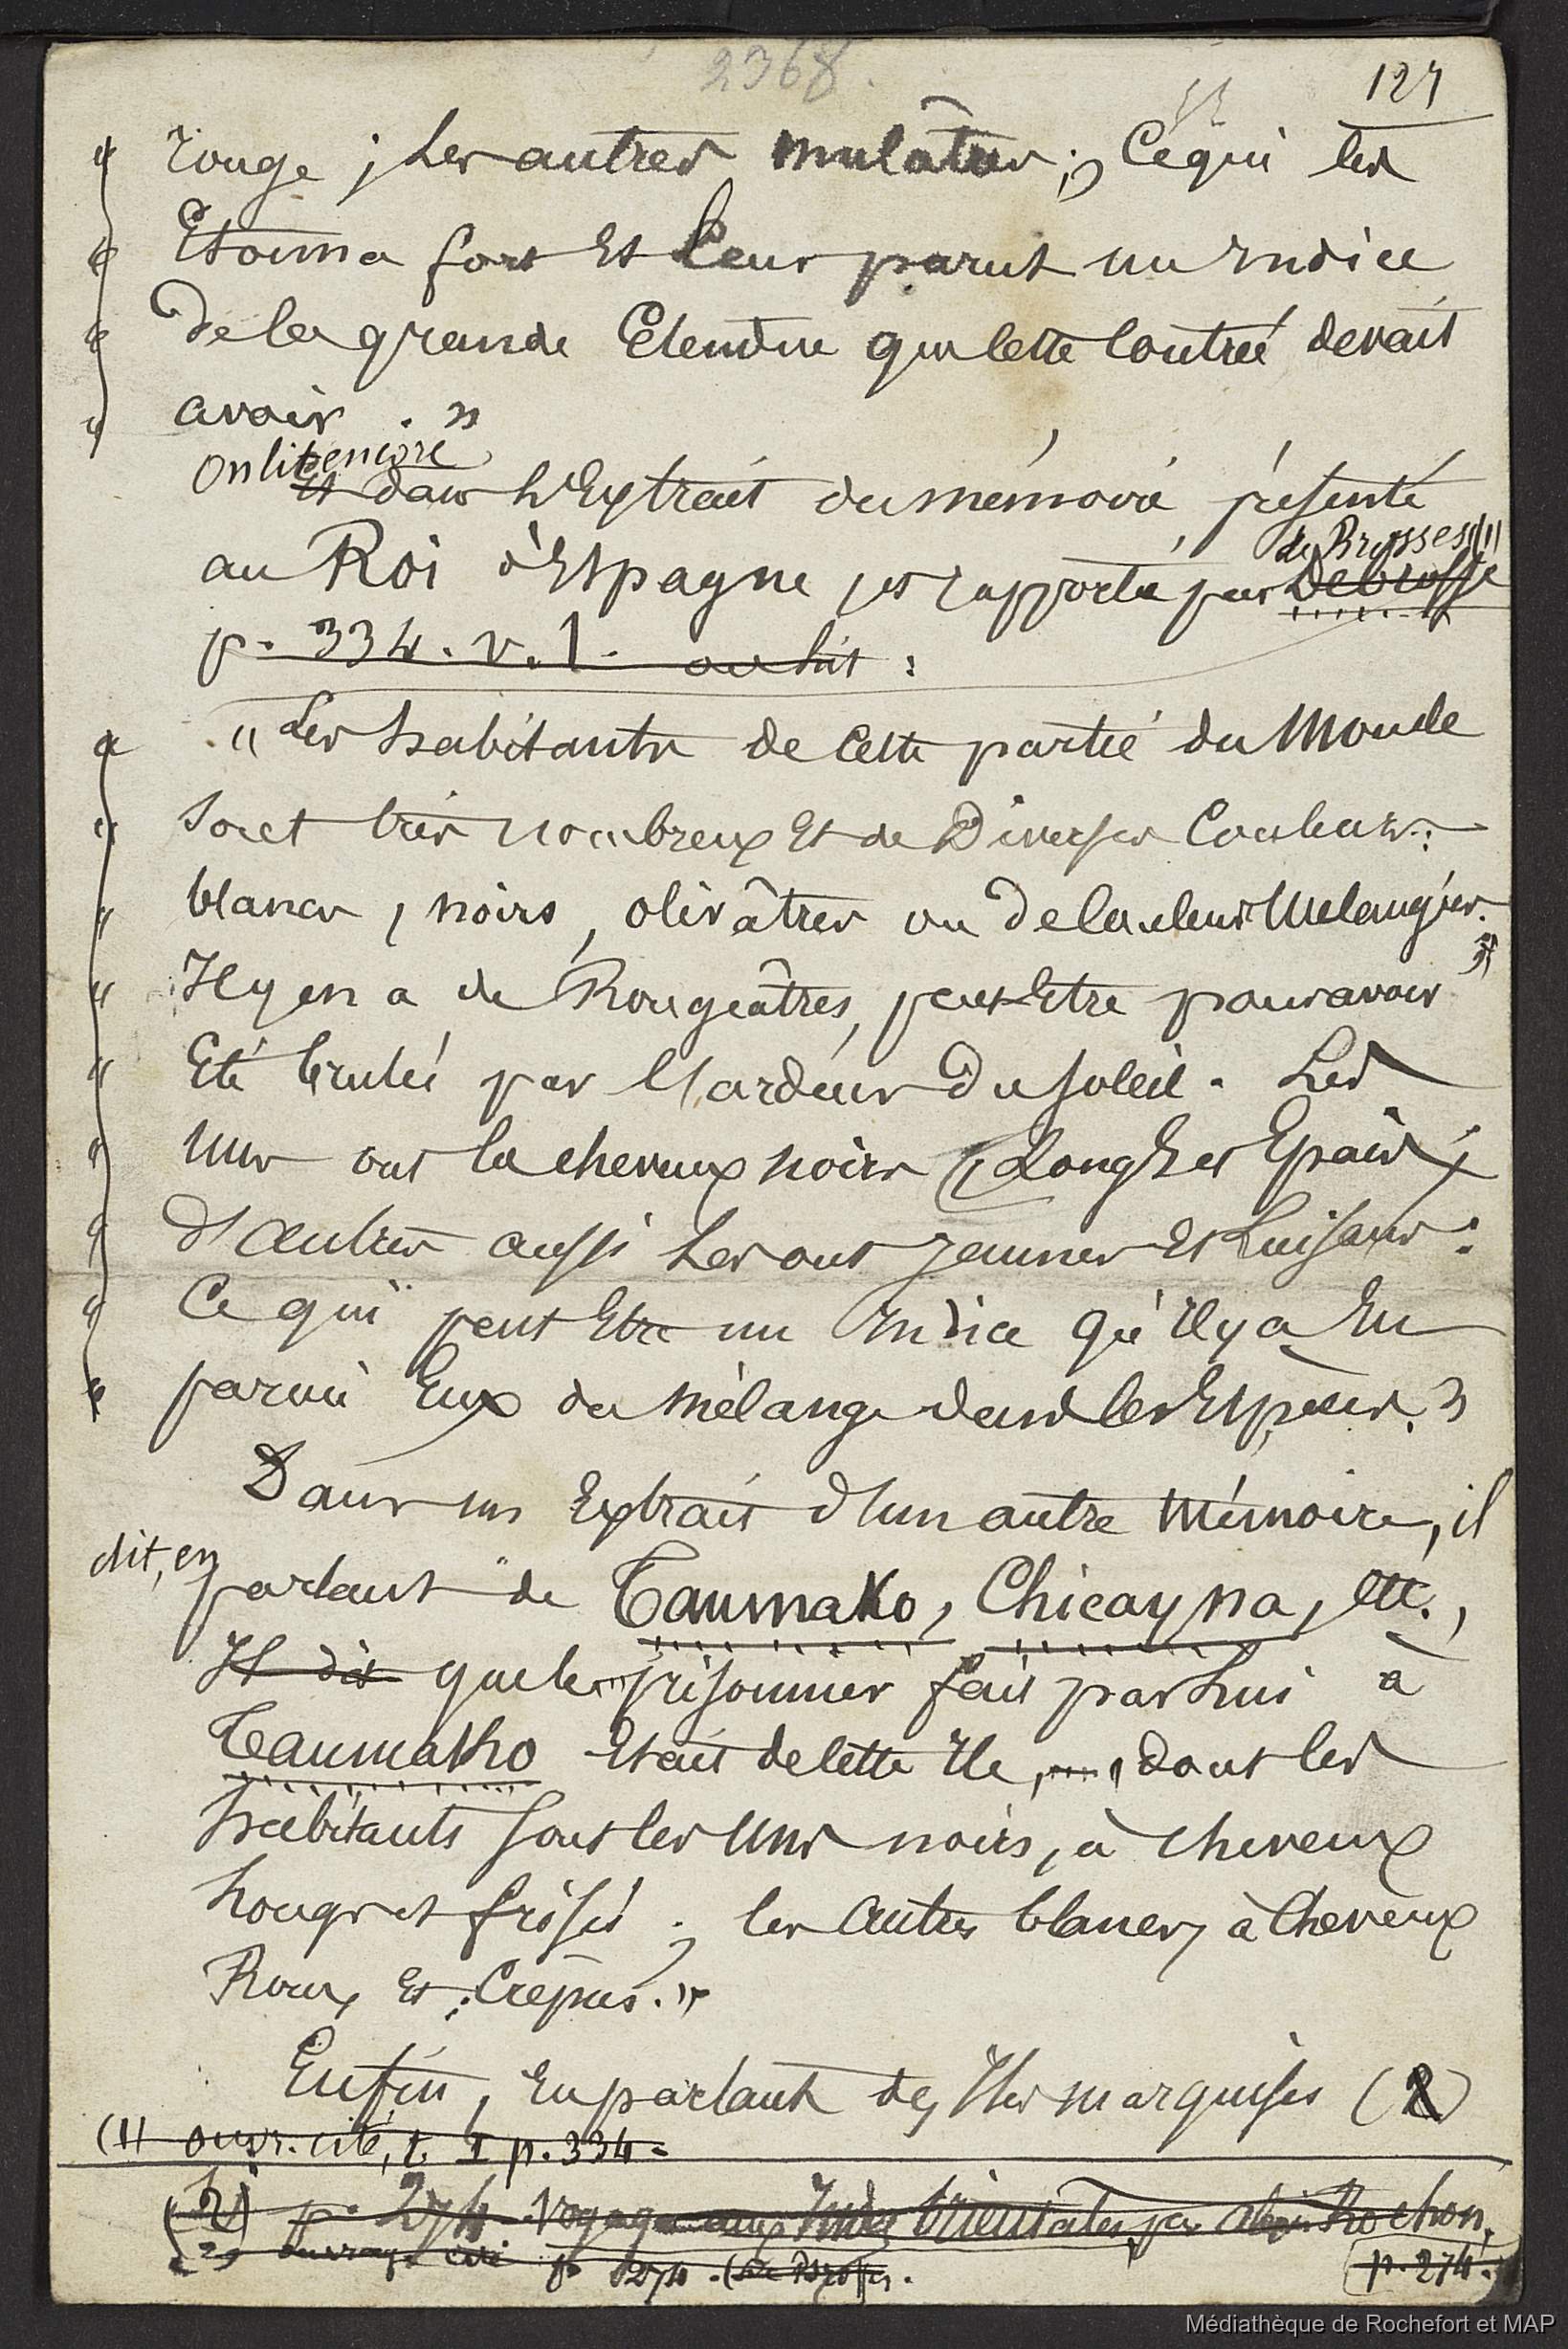 2368.
127
« rouge ; les autres mulâtres ; Ce qui les
« Etonna fort Et leur parut un Indice
« de la grande Etendue que cette Contrée devait
« avoir . »
On lit encore
Et dans l'Extrait du mémoire présenté
de Brosses (1)
au Roi d'Espagne et rapporté par Debrosse
p. 334. v. 1. on lit :
« "Les habitants de Cette partie du Monde
« sont très nombreux Et de Diverses Couleurs :
« blancs, noirs, olivâtres ou de Couleur Mélangées.
« Il y en a de Rougeâtres, peut Etre pour avoir
« Eté brulés par l'ardeur du soleil. Les
« uns ont les cheveux noirs, Longs et Epais ;
« d'Autres aussi Les ont jaunes Et Luisans :
« Ce qui peut Etre un Indice qu'il y a Eu
« parmi Eux du mélange dans les Espèces. »
Dans un Extrait d'un autre Mémoire, il
dit, en
parlant de Taumako, Chicayna, etc.,
Il dit que le prisonnier fait par Lui à
Taumako Etait de Cette Ile, .... , dont les
habitants sont les Uns noirs, à cheveux
Longs et frisés ; les Autres blancs, à Cheveux
Roux Et Crépus. »
Enfin, En parlant des Iles marquises (2)
(1) ouvr. cité, t. I p. 334.
(2) p. 274 Voyage aux Indes Orientales par Abbé Rochon,
ouvrage cité p. 274. (De Brosses.
p. 274.
Médiathèque de Rochefort et MAP